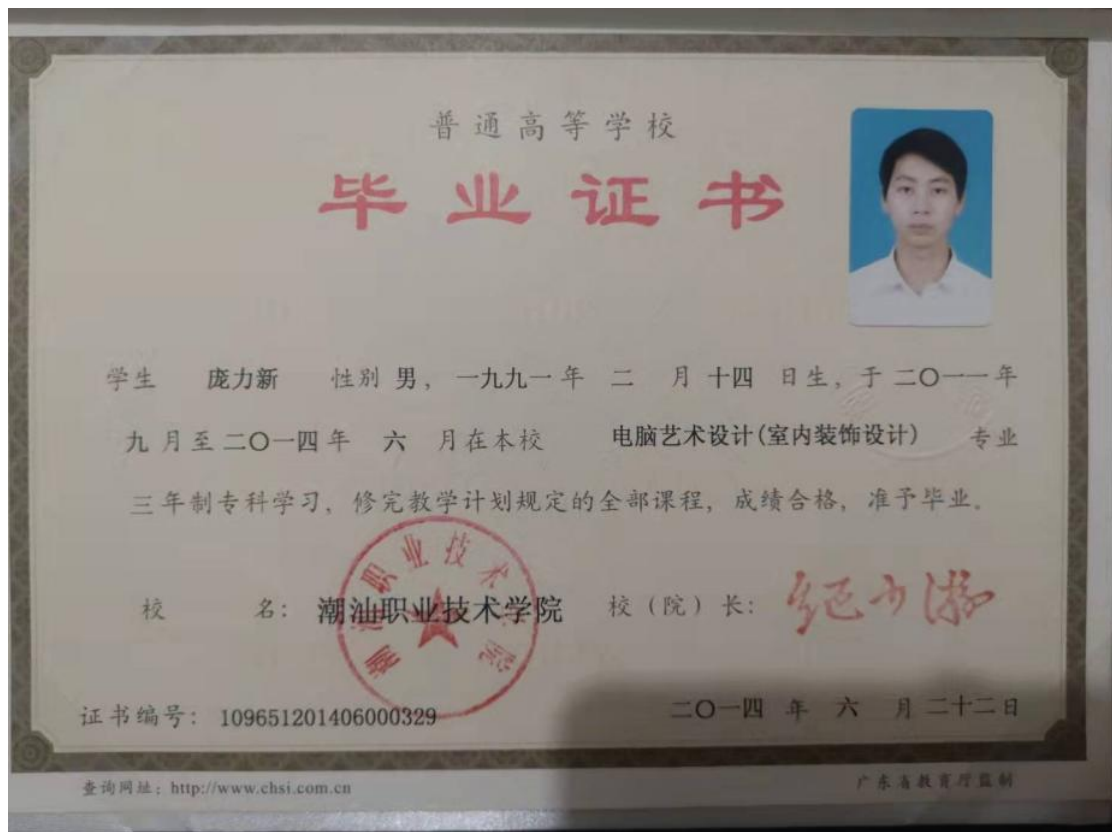 普通高等学校
毕业证书
学生 庞力新 性别 男，一九九一年 二 月 十四 日生，于二〇一一年
九 月至二〇一四年 六 月在本校 电脑艺术设计(室内装饰设计) 专业
三年制专科学习，修完教学计划规定的全部课程，成绩合格，准予毕业。
校 名：潮汕职业技术学院 校（院）长：
潮汕职业技术学院
证书编号：109651201406000329 二〇一四 年 六 月 二十二日
查询网址：http://www.chsi.com.cn 广东省教育厅监制